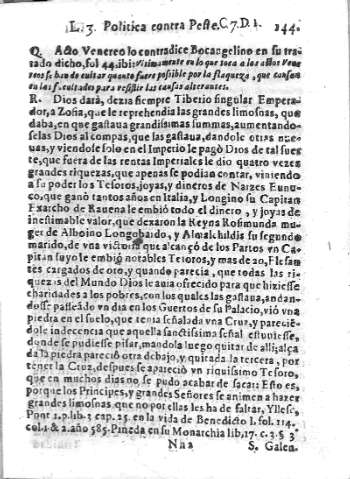 L. 3. Politica contra Peste. C. 7. D. 1. 144.
Q. Acto Venereo lo contradice Bocangelino en su tra-
tado dicho, fol 44. ibi: Ultimamente en lo que toca a los actos Vene
reos se han de euitar quanto fuere possible por la flaqueza, que causan
en las facultades para resistir las causas alterantes.
R. Dios dará, dezia siempre Tiberio singular Empera-
dor, a Zofia, que le reprehendia las grandes limosnas, que
daba, en que gastaua grandissimas summas, aumentando-
selas Dios al compas, que las gastaua, dandole otras nue-
uas, y viendose solo en el Imperio le pagò Dios de tal sues
te, que fuera de las rentas Imperiales le dio quatro vezes
grandes riquezas, que apenas se podian contar, viniendo
a su poder los Tesoros, joyas, y dineros de Narzes Eunu-
co, que ganò tantos años en Italia, y Longino su Capitan
Exarcho de Rauena le embiò todo el dinero, y joyas de
inestimable valor, que dexaron la Reyna Rosimunda mu-
ger de Alboino Longobardo, y Almalchildis su segundo
marido, de vna victoria que alcançò de los Partos vn Ca-
pitan suyo le embiò notables Tesoros, y mas de 20. Elefan
tes cargados de oro, y quando parecia, que todas las ri-
quezas del Mundo Dios le auia ofrecido para que hiziesse
charidades a los pobres, con los quales las gastaua, andan-
dosse passeado vn dia en los Guertos de su Palacio, viò vna
piedra en el suelo, que tenia señalada vna Cruz, y pareciẽ-
dole indecencia que aquella sanctissima señal estuuiesse,
donde se pudiesse pisar, mandola luego quitar de alli; alça
da la piedra pareciò otra debajo, y quitada la tercera, por
tener la Cruz, despues se apareciò vn riquissimo Tesoro,
que en muchos dias no se pudo acabar de sacar: Esto es,
porque los Principes, y grandes Señores se animen a hazer
grandes limosnas que no por ellas les ha de faltar, Yllesc.
Pont. 1. p. lib. 3 cap. 25. en la vida de Benedicto I. fol. 114.
col. 1. & 2. año 585. Pineda en su Monarchia lib. 17. c. 3. § 3
Nna S. Galen.